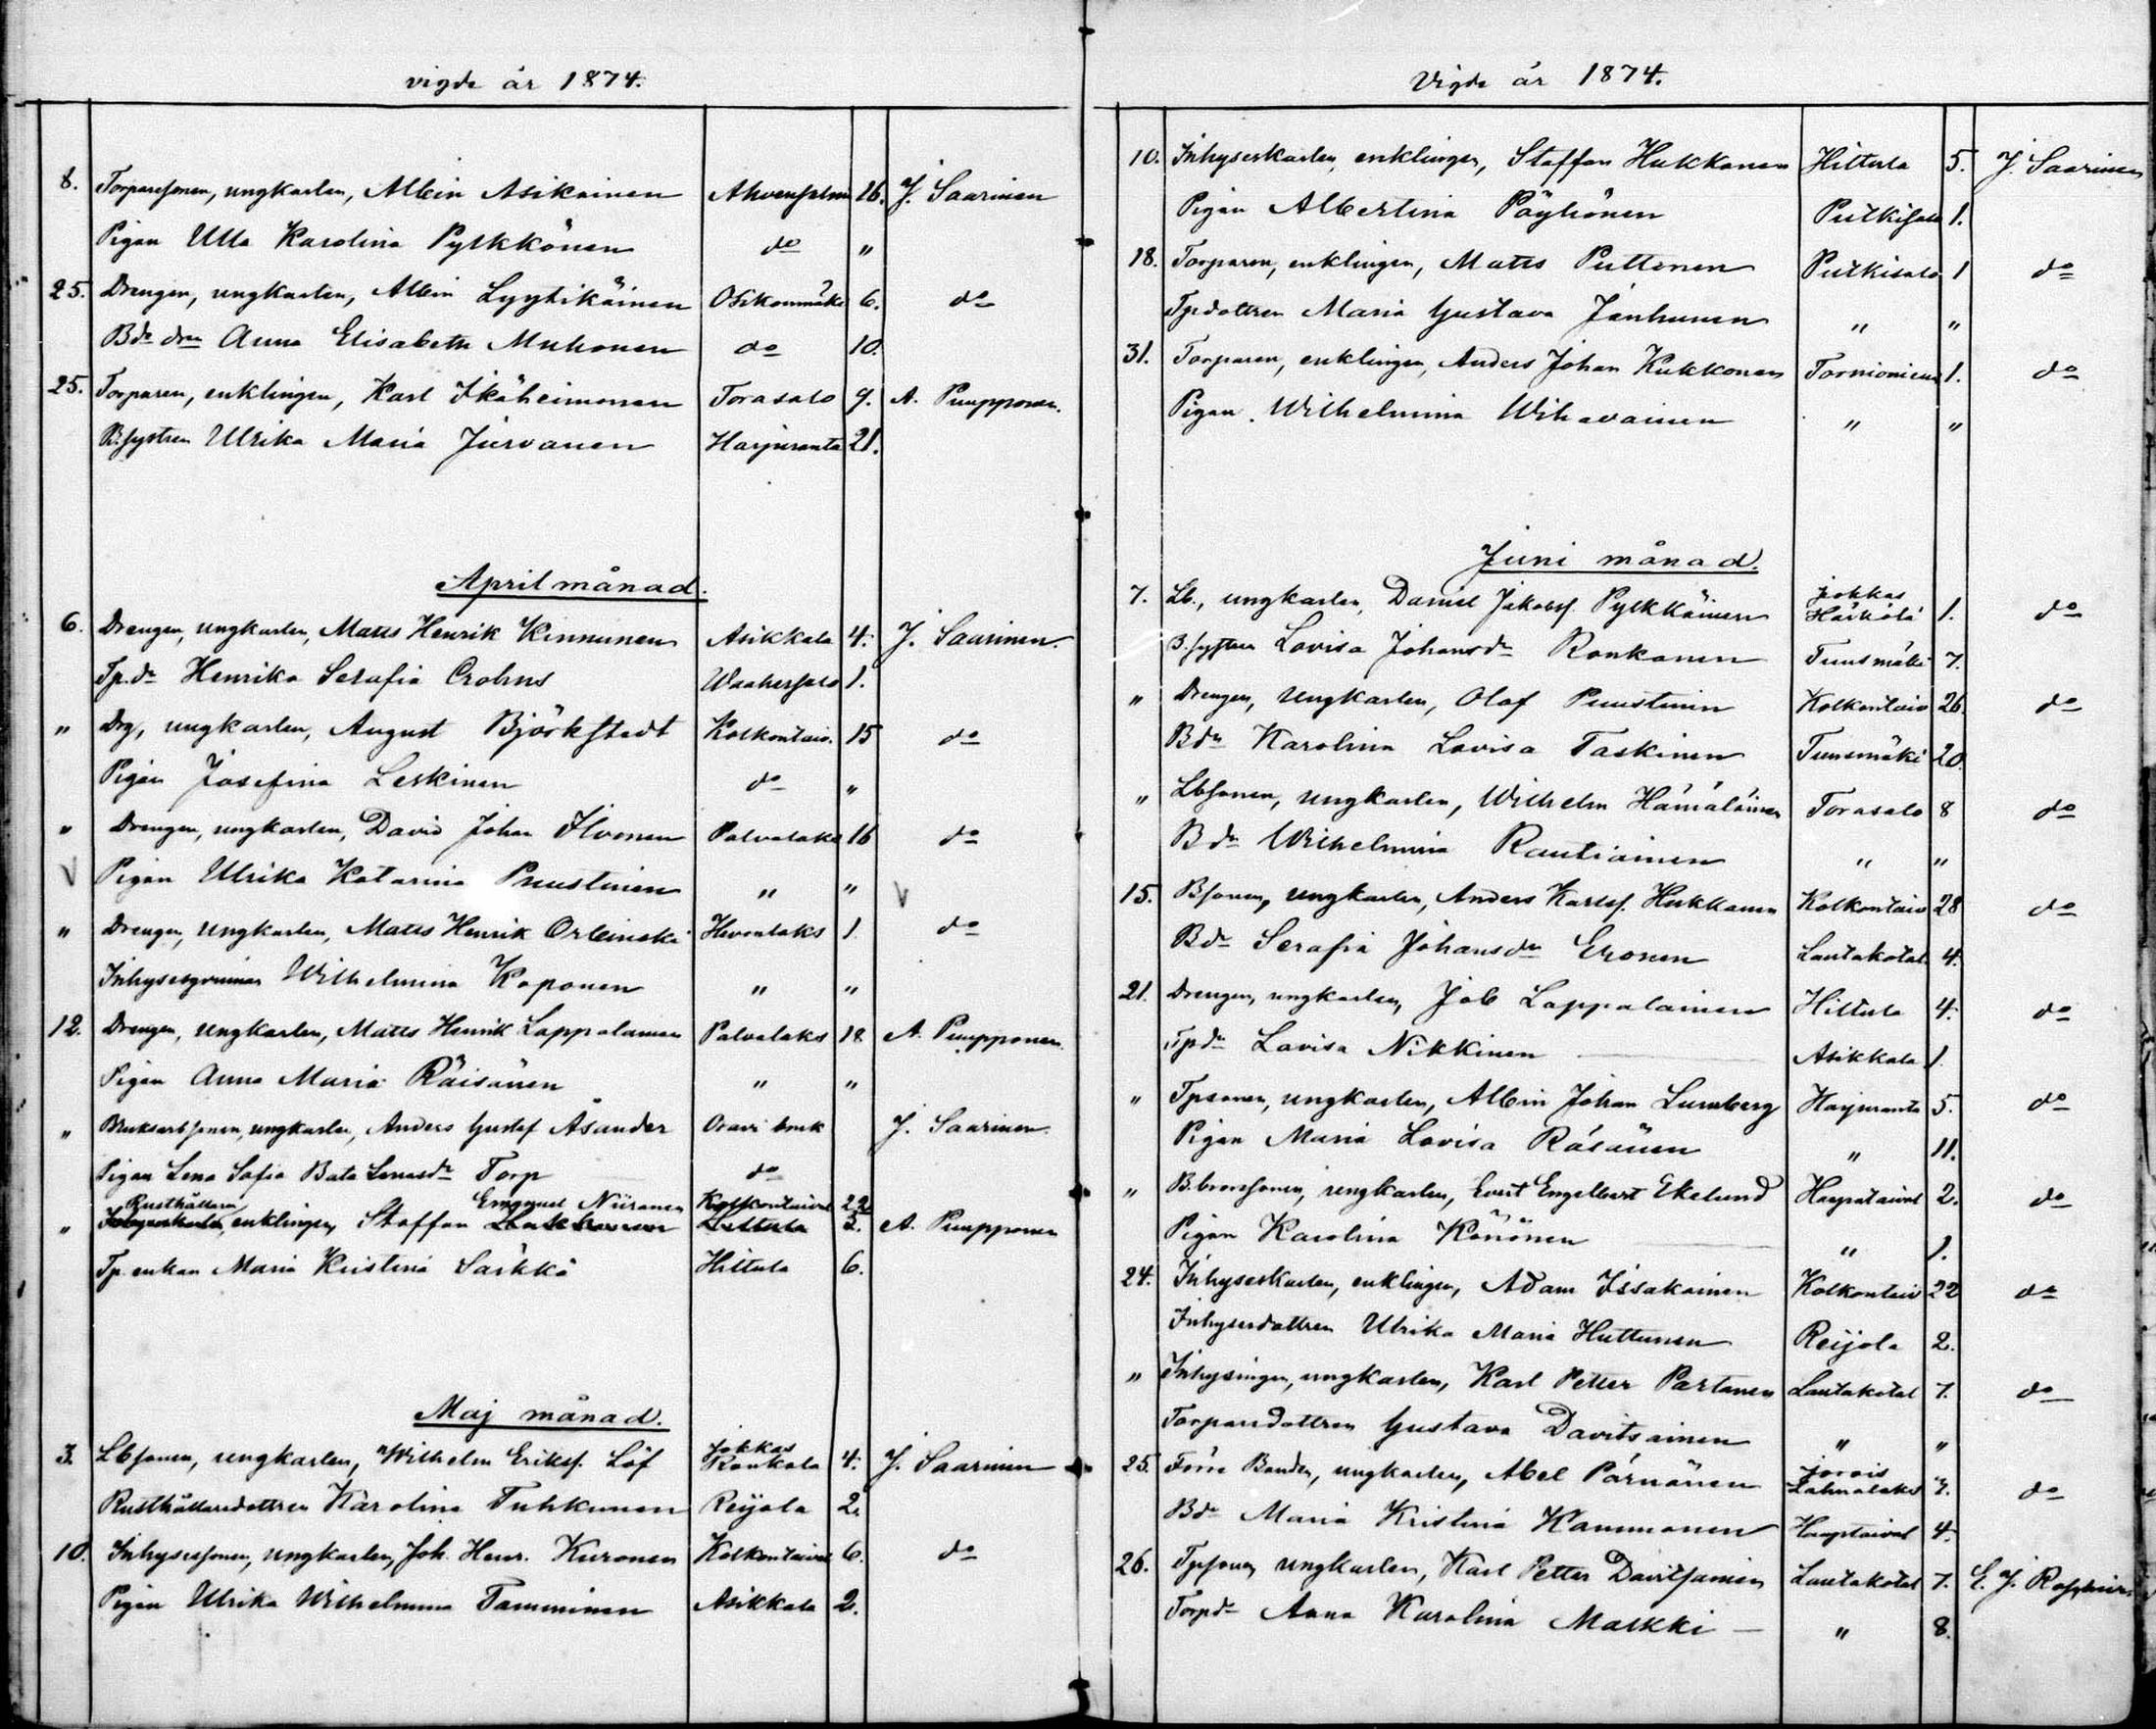 vigde år 1874.
8. Torparesonen, ungkarlen, Albin Asikainen Ahvenselm 26. J. Saarinen
Pigan Ulla Karolina Pylkkönen do "
25. Drengen, ungkarlen, Albin Lyytikäinen Osikonmäki 6. do
Bde drn Anna Elisabeth Muhonen do 10.
25. Torparen, enklingen, Karl Ikäheimonen Torasalo 9. A. Puupponen.
B.systren Ulrika Maria Jurvanen Harjuranta 21.
April månad.
6. Drengen, ungkarlen, Matts Henrik Kinnunen Asikkala 4. J. Saarinen.
Tp.dr Henrika Serafia Crohns Waahersalo 1.
" Drg, ungkarlen, August Björkstedt Kolkontaiv. 15 do
Pigan Josefina Leskinen do "
" Drengen, ungkarlen, David Johan Ilvonen Palvalaks 16 do
V Pigan Ulrika Katarina Puustinen " " V
" Drengen, ungkarlen, Matts Henrik Orleinski Hevonlaks 1 do
Inhysesqvinnan Wilhelmina Koponen " "
12. Drengen, ungkarlen, Matts Henrik Lappalainen Palvalaks 18 A. Puupponen.
Pigan Anna Maria Räisänen " "
" Bruksarbsonen, ungkarlen, Anders Gustaf Åsander Oravi bruk J. Saarinen.
Pigan Lena Sofia Beata Lenasdr Torp do
Rusthållaren Emanuel Niiranen Kolkontaival 22
" enklingen, Staffan A. Puupponen
Tp.enkan Maria Kristina Särkkä Hiltula 6.
Maj månad.
3. Lbsonen, ungkarlen, Wilhelm Eriks. Löf Jokkas Rankala 4. J. Saarinen
Rusthållaredottren Karolina Tuhkunen Reijola 2.
10. Inhysessonen, ungkarlen, Joh. Henr. Kuronen Kolkontaival 6. do
Pigan Ulrika Wilhelmina Tamminen Asikkala 2.
Vigde år 1874.
10. Inhyseskarlen, enklingen, Staffan Hukkanen Hiltula 5. J. Saarinen
Pigan Albertina Pöyhönen Putkisalo 1.
18. Torparen, enklingen, Matts Puttonen Putkisalo 1 do
Tpdottren Maria Gustava Janhunen " "
31. Torparen, enklingen, Anders Johan Kukkonen Tornioniemi 1. do
Pigan Wilhelmina Wihavainen " "
Juni månad.
7. Lb., ungkarlen, Daniel Jakobs. Pylkkänen Jokkas Härkälä 1. do
B.systren Lovisa Johansdr Ronkanen Tuusmäki 7.
" Drengen, ungkarlen, Olof Puustinen Kolkontaiv 26. do
Bdr Karolina Lovisa Taskinen Tuusmäki 20.
" Lbsonen, ungkarlen, Wilhelm Hämäläinen Torasalo 8 do
Bdr Wilhelmina Rautiainen " "
15. Bsonen, ungkarlen, Anders Karls. Hukkanen Kolkontaiv 28 do
Bdr Serafia Johansdr Eronen Lautakotal. 4.
21. Drengen, ungkarlen, Job Lappalainen Hiltula 4. do
Tpdr Lovisa Nikkinen Asikkala 1.
" Tpsonen, ungkarlen, Albin Johan Lumberg Harjuranta 5. do
Pigan Maria Lovisa Räsänen " 11.
" ungkarlen, Evert Engelbert Ekelund Haapataival 2. do
Pigan Karolina Könönen " 1.
24. Inhyseskarlen, enklingen, Adam Issakainen Kolkontaiv 22 do
Inhysesdottren Ulrika Maria Huttunen Reijola 2.
" Inhysingen, ungkarlen, Karl Petter Partanen Lautakotal 7. do
Torparedottren Gustava Davitsainen " "
25. Förre Bonden, ungkarlen, Abel Pärnänen Jorois Lahnalaks 7. do
Bdr Maria Kristina Kammonen Haaptaival 4.
26. Tpsonen, ungkarlen, Karl Petter Davitsainen Lautakotal 7.
Torpdr Anna Karolina Malkki " 8.